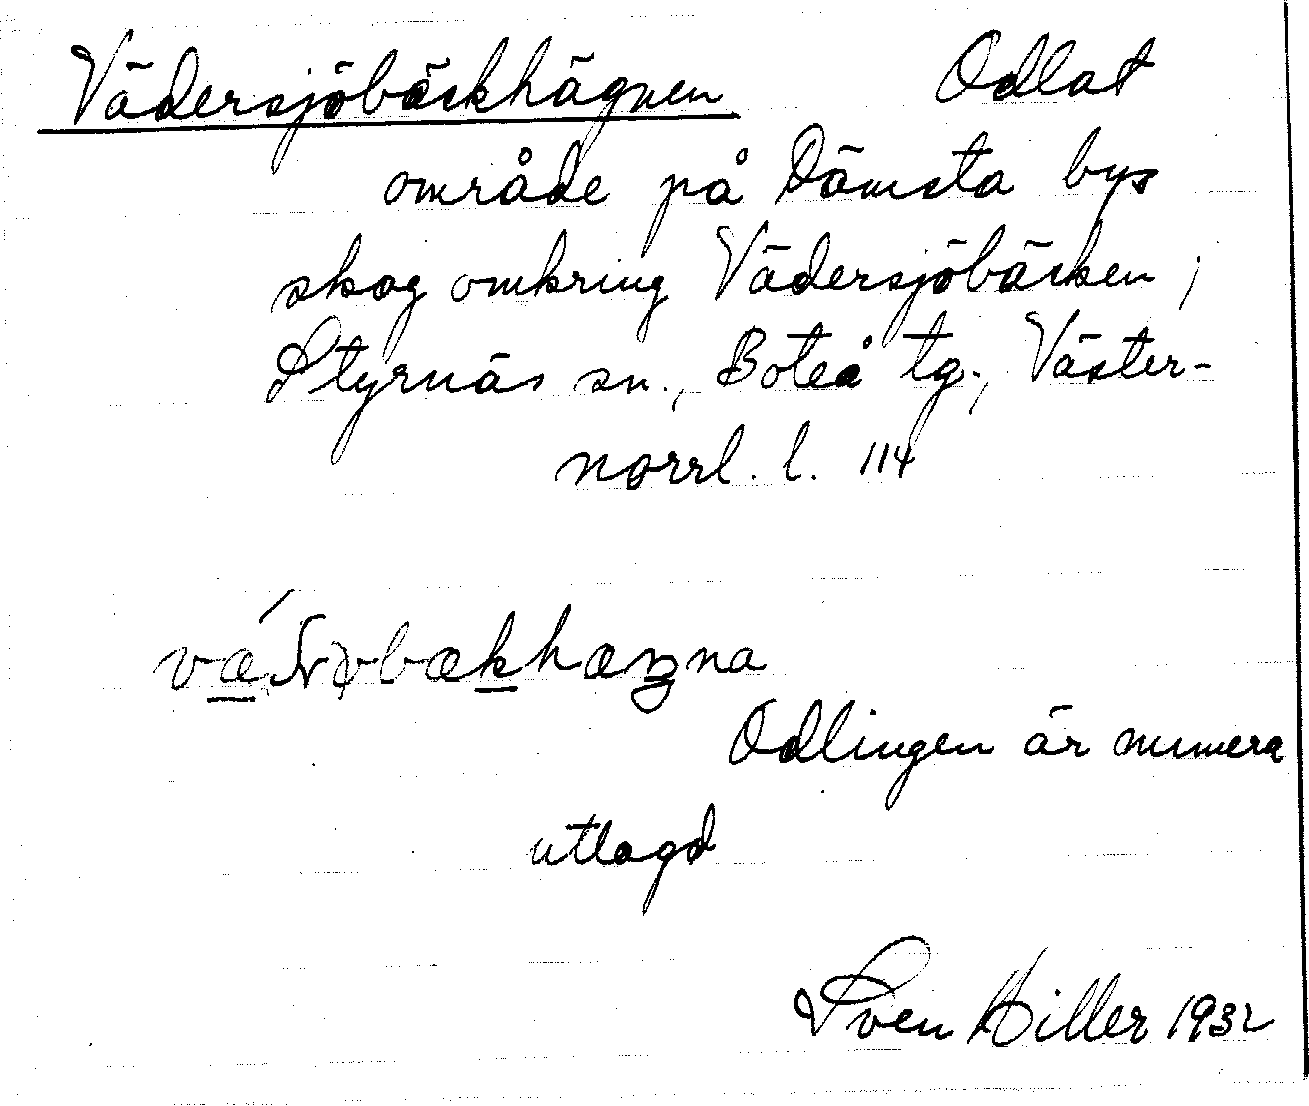 Vädersjöbäckhägnen Odlat
område på Dämsta bys
skog omkring Vädersjöbäcken,
Styrnäs sn., Boteå tg., Väster-
norrl. l. 114
Odlingen är numera
utlagd
Sven Hiller 1932